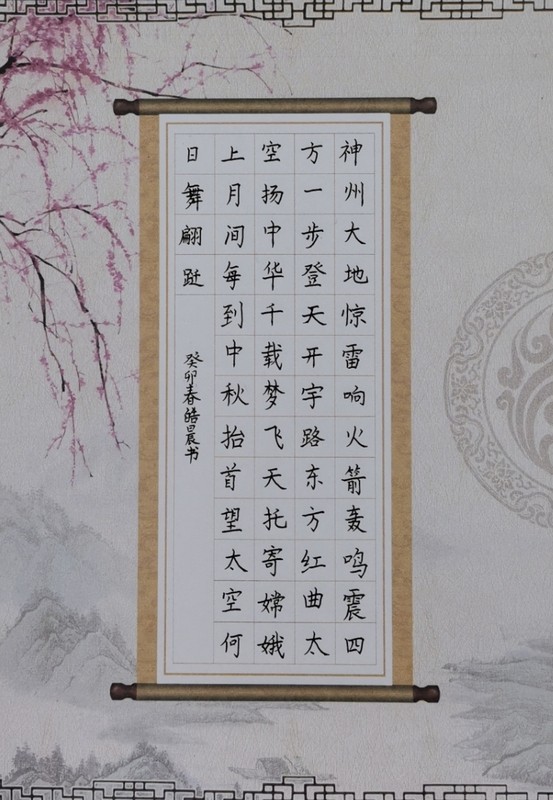 神州大地惊雷响火箭轰鸣震四
方一步登天开宇路东方红曲太
空扬中华千载梦飞天托寄嫦娥
上月间每到中秋抬首望太空何
日舞翩跹
癸卯春皓晨书